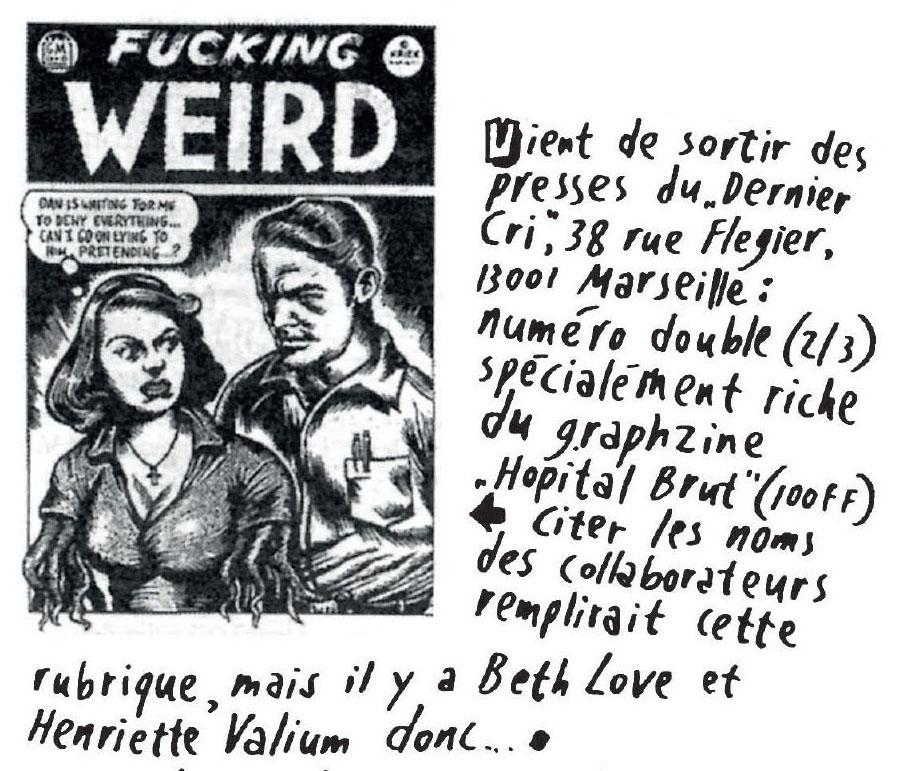 FUCKING
WEIRD
DAN IS WAITING FOR ME
TO DENY EVERYTHING...
CAN I GO ON LYING TO
HIM, PRETENDING...?
Vient de sortir des
presses du „Dernier
Cri", 38 rue Flegier,
13001 Marseille :
numéro double (2/3)
spécialément riche
du graphzine
„Hopital Brut" (100FF)
← Citer les noms
des collaborateurs
remplirait cette
rubrique, mais il y a Beth Love et
Henriette Valium donc...